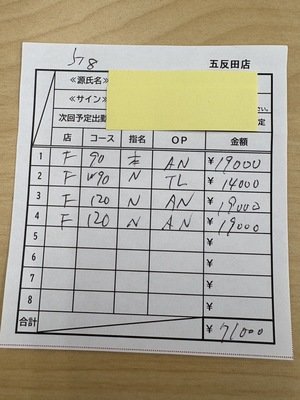 5/8 五反田店
≪源氏名≫
≪サイン≫ さい。
次回予定出勤 定
店 コース 指名 OP 金額
1 F 90 本 AN ¥19000
2 F W90 N TL ¥14000
3 F 120 N AN ¥19000
4 F 120 N AN ¥19000
5 ¥
6 ¥
7 ¥
8 ¥
合計 ¥71000